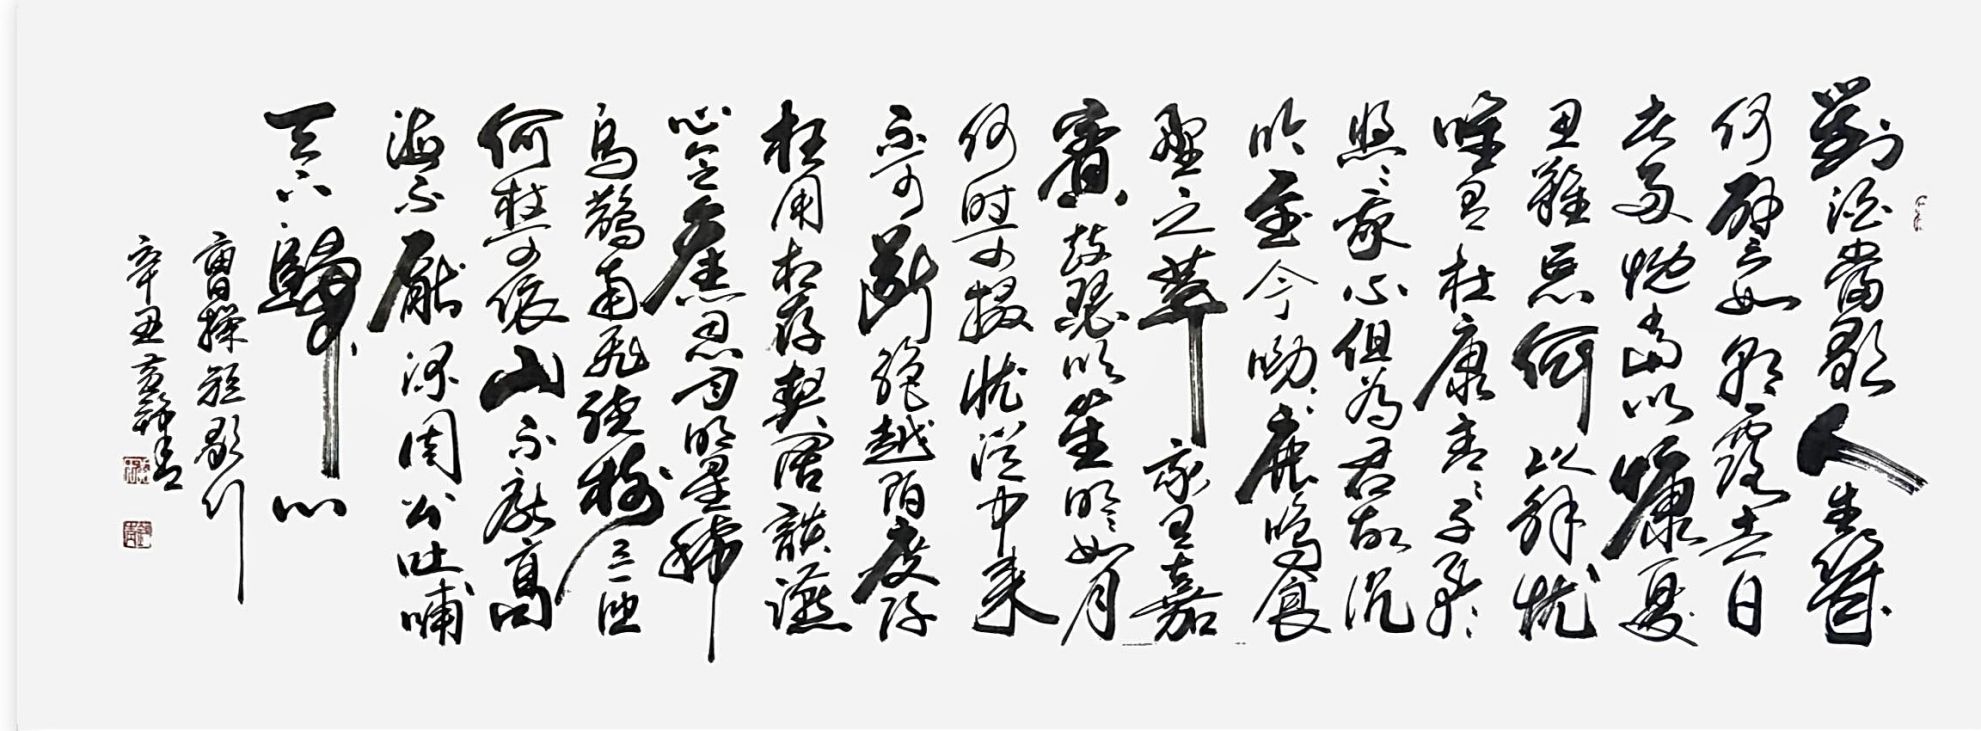 對酒當歌人生幾
何譬如朝露去日
苦多慨當以慷憂
思難忘何以解忧
唯有杜康青々子衿
悠々我心但為君故沉
吟至今呦々鹿鳴食
野之苹我有嘉
賓鼓瑟吹笙明々如月
何时可掇忧從中来
不可斷絕越陌度阡
枉用相存契闊談讌
心念舊恩月明星稀
烏鵲南飛繞樹三匝
何枝可依山不厭高
海不厭深周公吐哺
天下歸心
曹操短歌行
辛丑